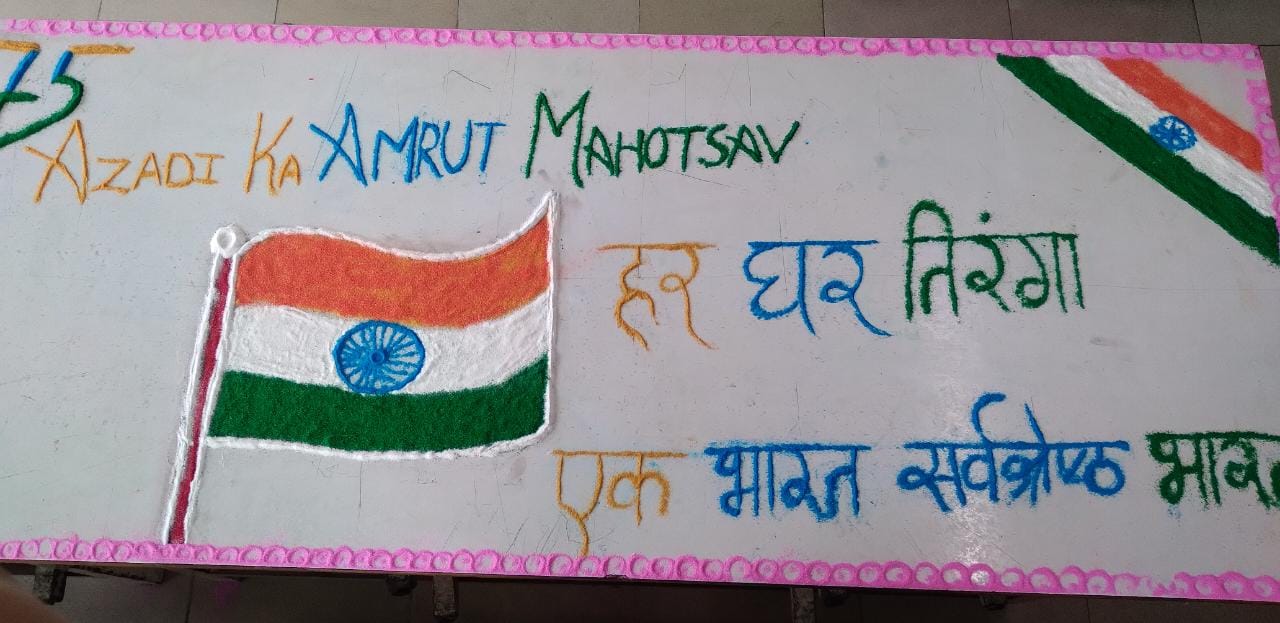 75
AZADI KA AMRUT MAHOTSAV
हर घर तिरंगा
एक भारत सर्वश्रेष्ठ भारत